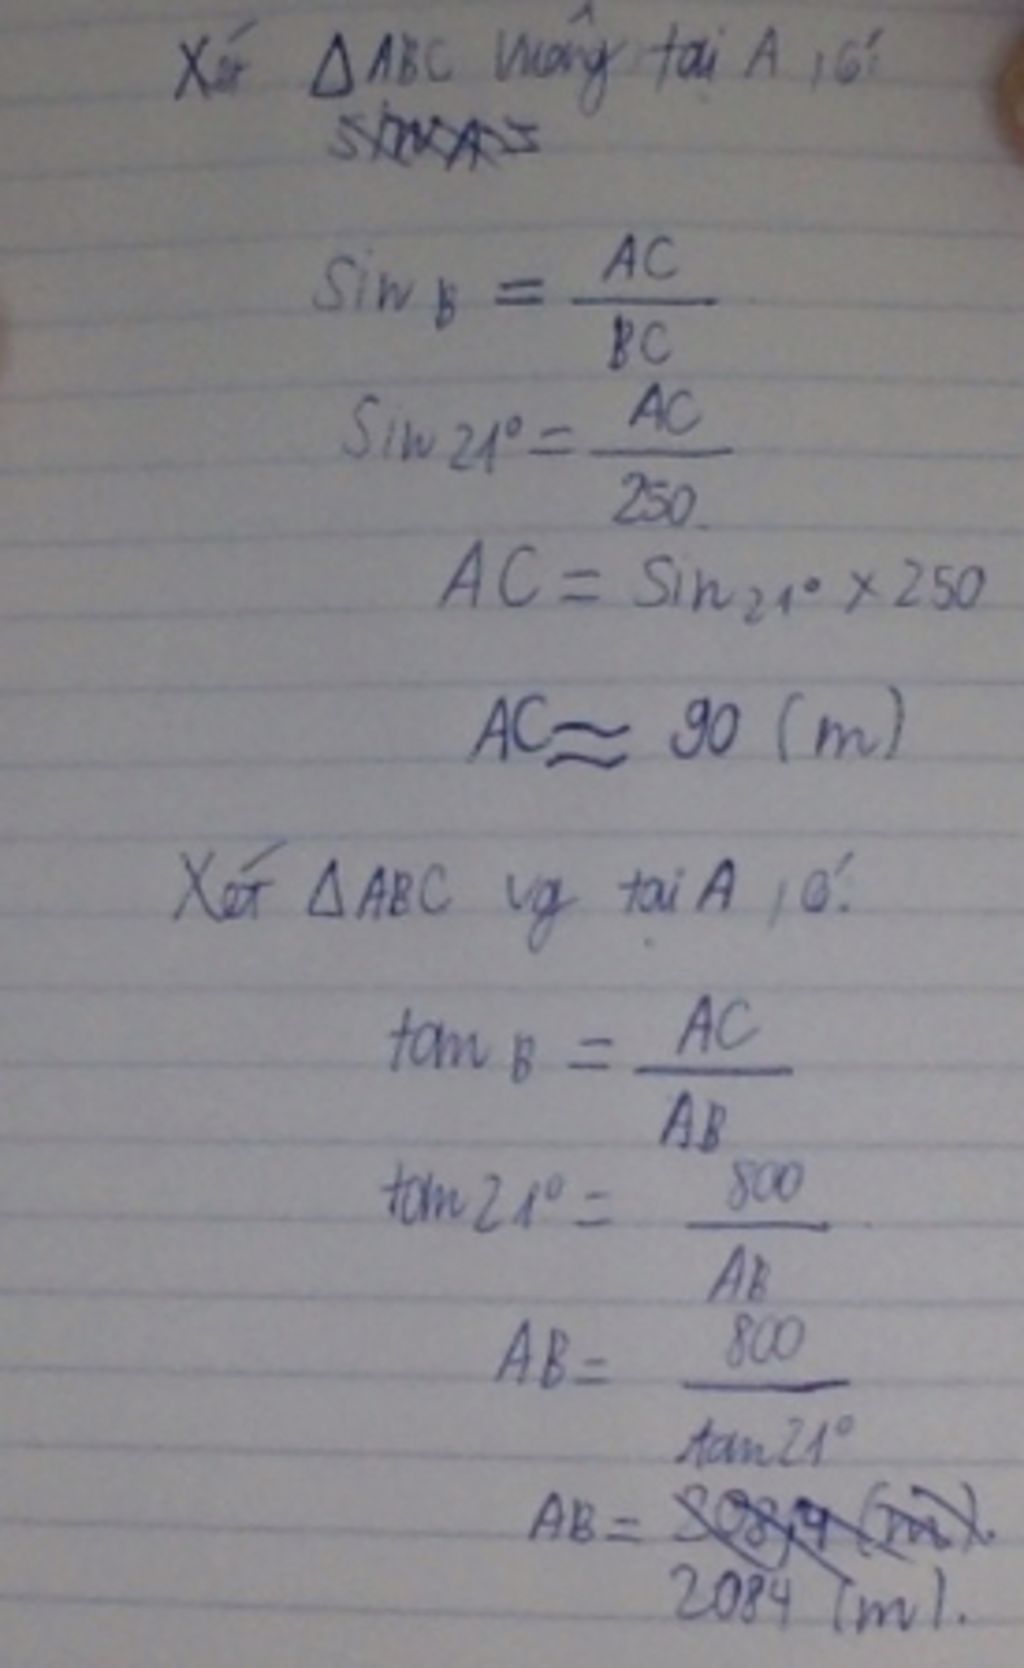 Xét ΔABC vuông tại A, có:
sin B = AC / BC
Sin 21° = AC / 250
AC = Sin 21° × 250
AC ≈ 90 (m)
Xét ΔABC vg tại A, có:
tan B = AC / AB
tan 21° = 800 / AB
AB = 800 / tan 21°
AB =
2084 (m).